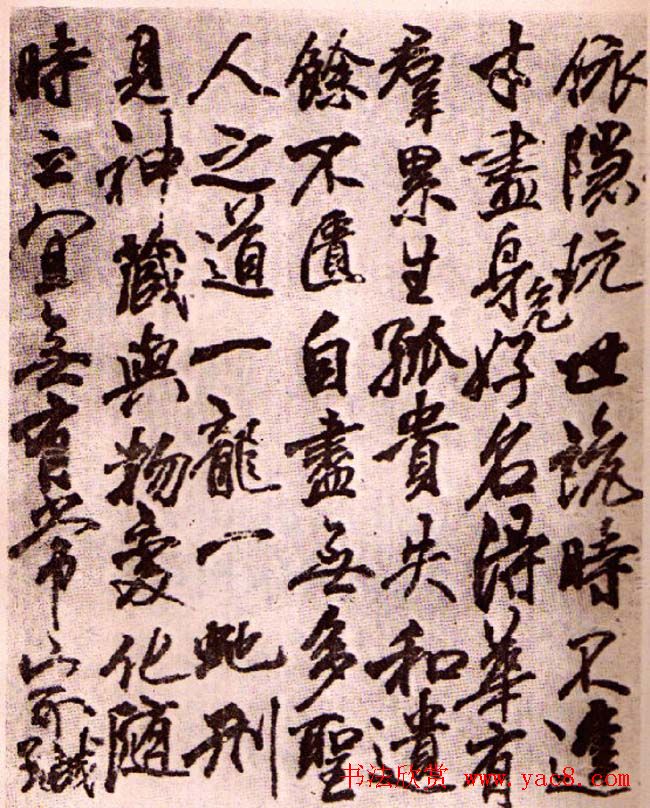 依隱玩世詭時不逢
才盡身危好名得華有
羣累生孤貴失和遺
餘不匱自盡無多聖
人之道一龍一虵刑
見神藏與物變化隨
時之宜無有常家
书法欣赏 www.yac8.com